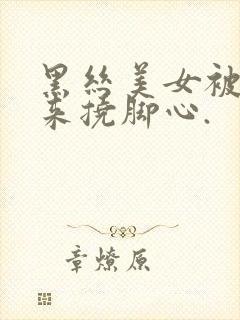 黑丝美女被
来挠脚心.
章燎原